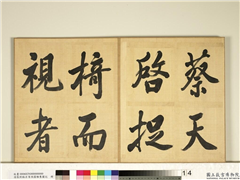 蔡天
啓捉
椅而
視者
14
國立故宮博物院